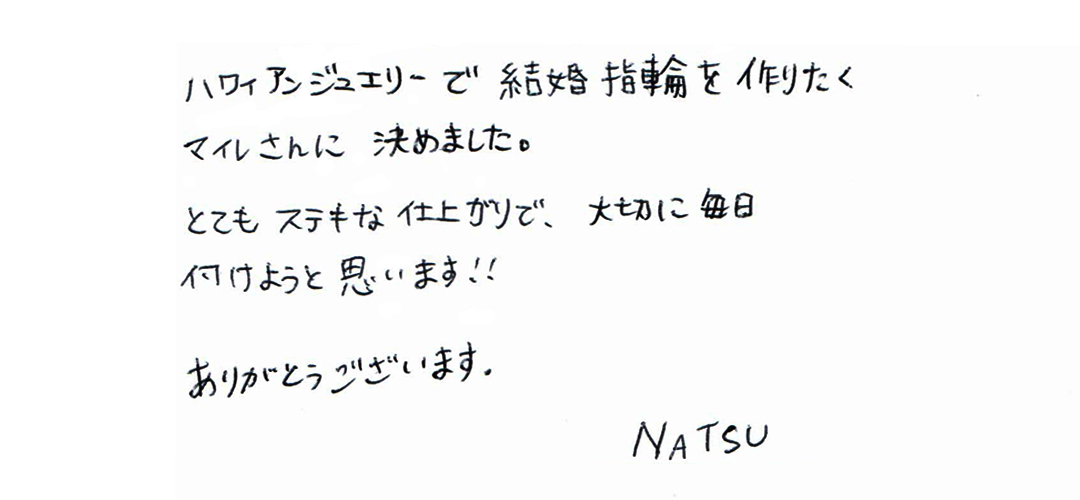 ハワイアンジュエリーで結婚指輪を作りたく
マイレさんに決めました。
とてもステキな仕上がりで、大切に毎日
付けようと思います!!
ありがとうございます.
NATSU